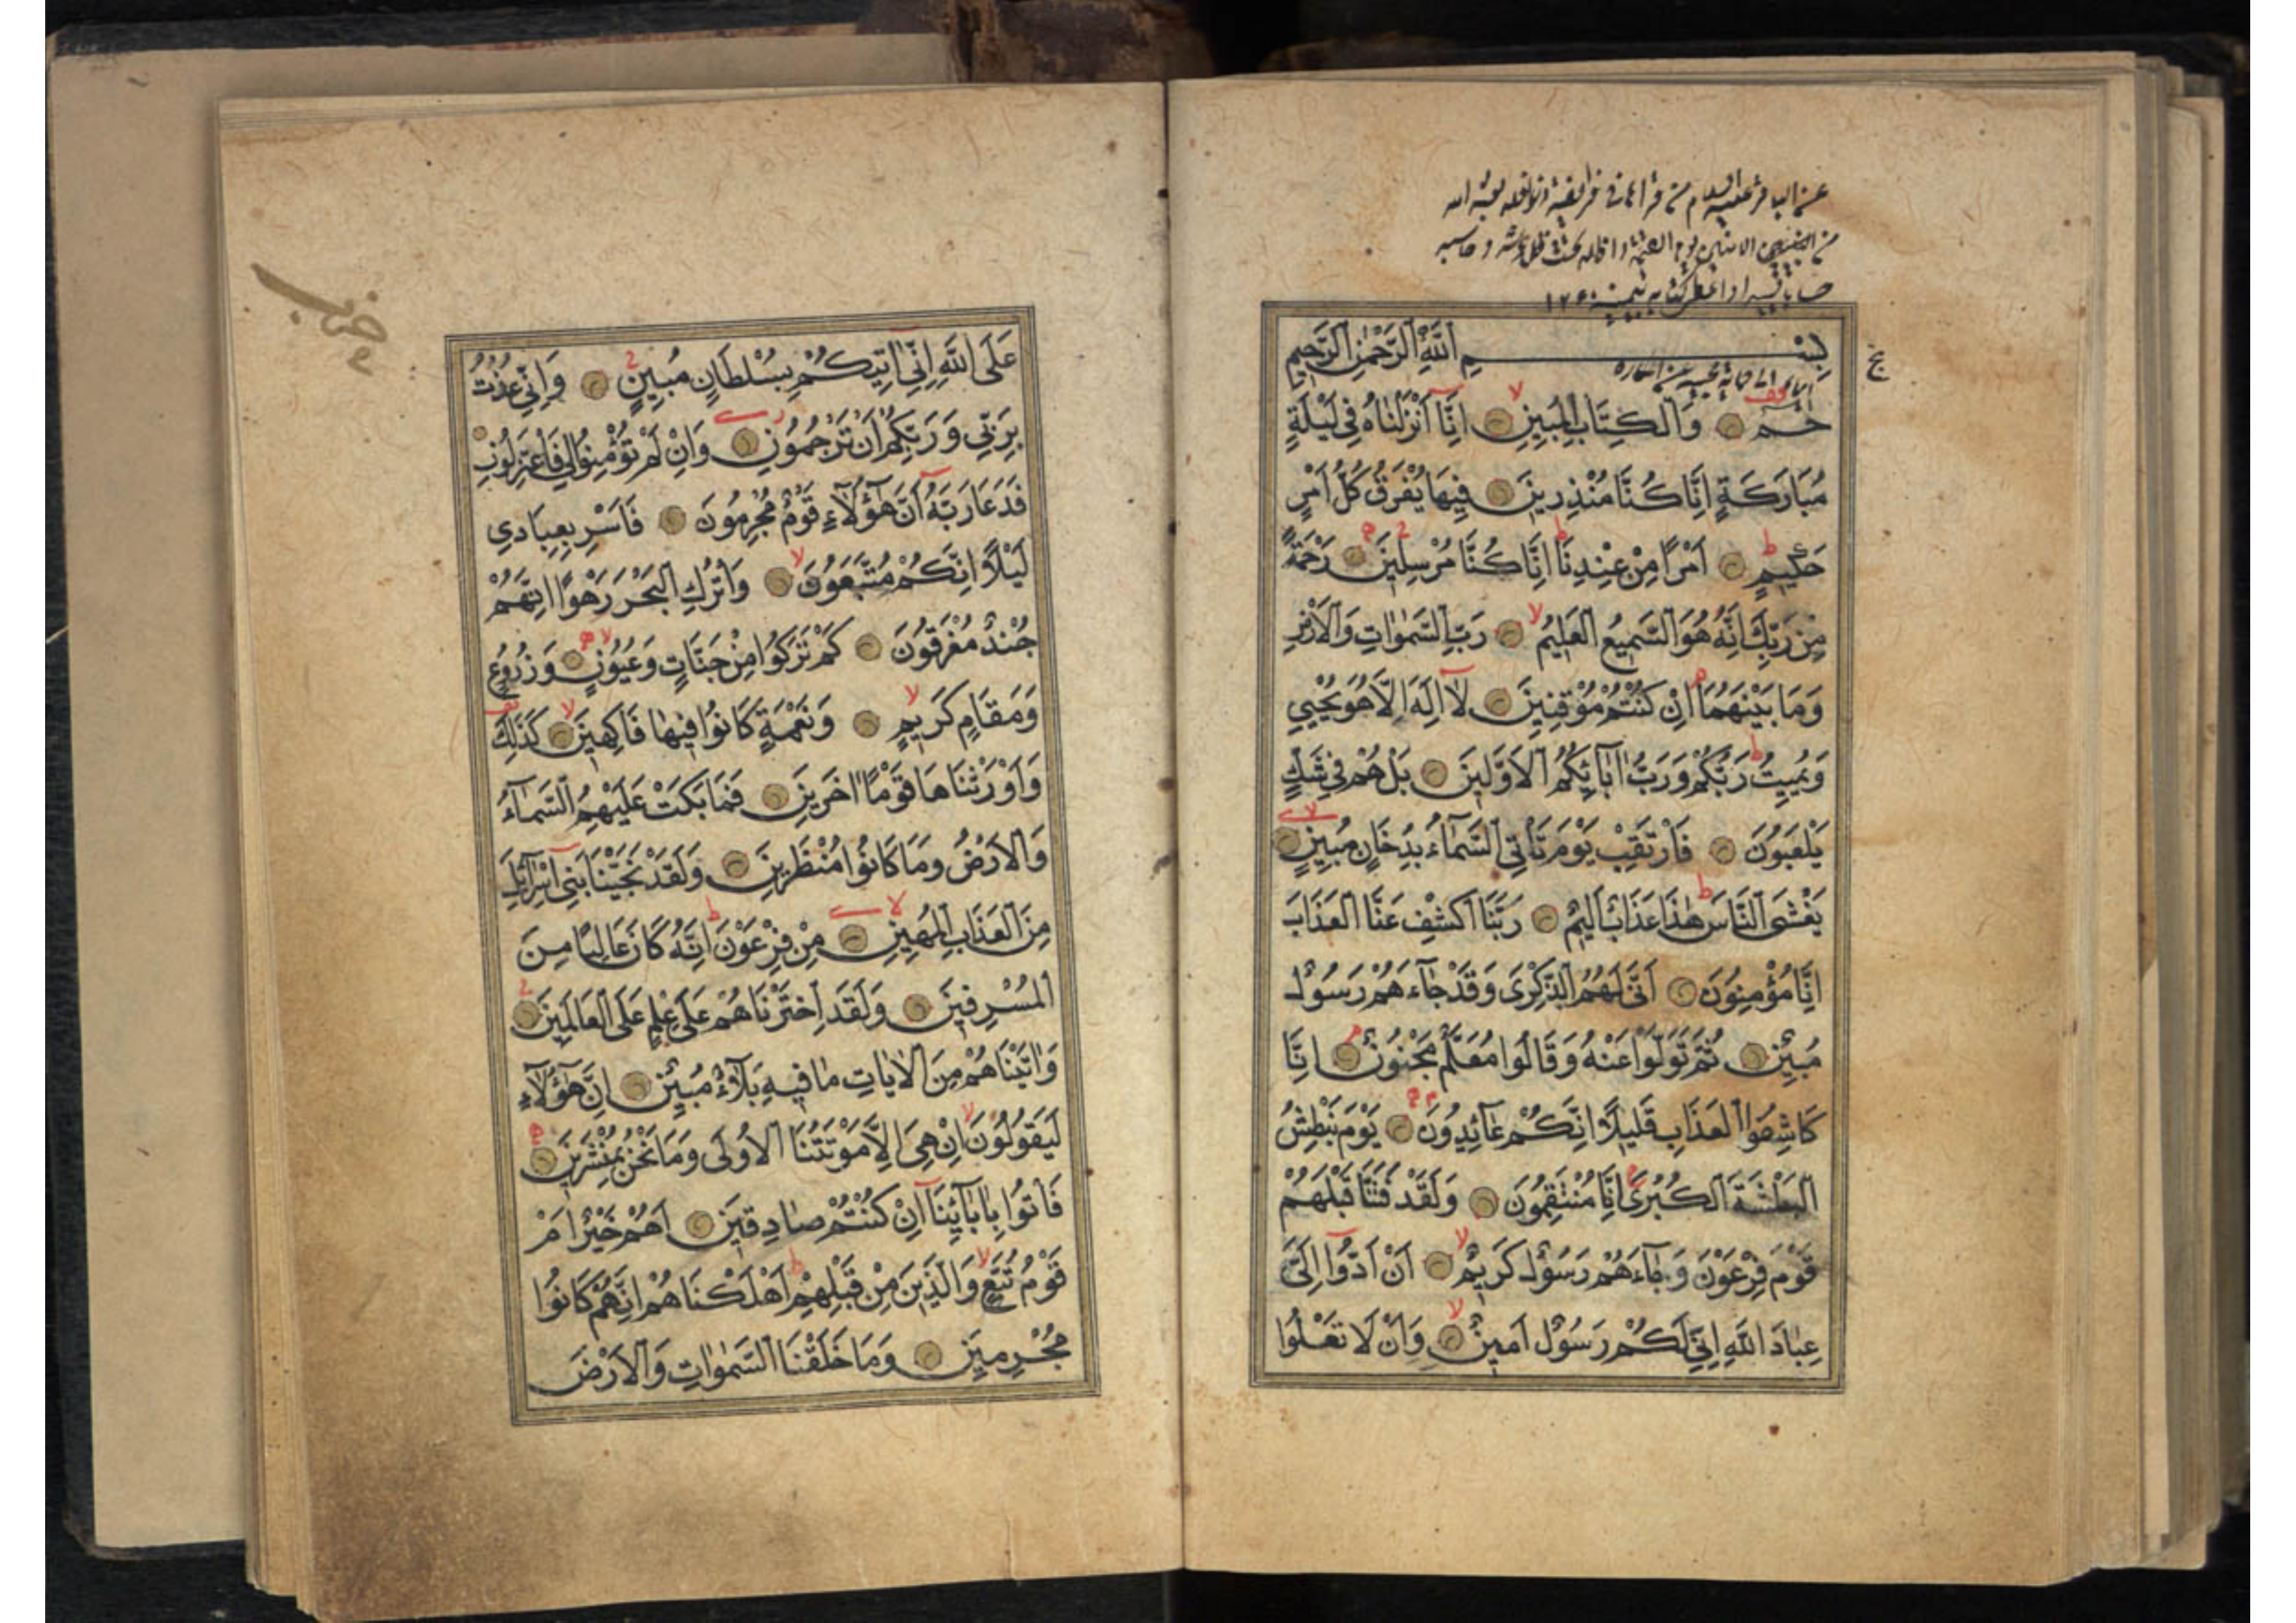 عن الباقر عليه السلام من قرأها في فرايضه ونوافله بعثه الله
من الامنين يوم القيمة واظله تحت ظل عرشه وحاسبه
حسابا يسيرا واعطى كتابه بيمينه
بسم الله الرحمن الرحيم
حم وَالْكِتَابِ الْمُبِينِ اِنَّا أَنْزَلْنَاهُ فِي لَيْلَةٍ
مُبَارَكَةٍ اِنَّا كُنَّا مُنْذِرِينَ فِيهَا يُفْرَقُ كُلُّ اَمْرٍ
حَكِيمٍ اَمْرًا مِنْ عِنْدِنَا اِنَّا كُنَّا مُرْسِلِينَ رَحْمَةً
مِنْ رَبِّكَ اِنَّهُ هُوَ السَّمِيعُ الْعَلِيمُ رَبِّ السَّمٰوَاتِ وَالْاَرْضِ
وَمَا بَيْنَهُمَا اِنْ كُنْتُمْ مُوْقِنِينَ لَا اِلَهَ اِلَّا هُوَ يُحْيِي
وَيُمِيتُ رَبُّكُمْ وَرَبُّ اٰبَائِكُمُ الْاَوَّلِينَ بَلْ هُمْ فِي شَكٍّ
يَلْعَبُونَ فَارْتَقِبْ يَوْمَ تَأْتِي السَّمَاءُ بِدُخَانٍ مُبِينٍ
يَغْشَى النَّاسَ هٰذَا عَذَابٌ اَلِيمٌ رَبَّنَا اكْشِفْ عَنَّا الْعَذَابَ
اِنَّا مُؤْمِنُونَ اَنَّى لَهُمُ الذِّكْرَى وَقَدْ جَاءَهُمْ رَسُولٌ
مُبِينٌ ثُمَّ تَوَلَّوْا عَنْهُ وَقَالُوا مُعَلَّمٌ مَجْنُونٌ اِنَّا
كَاشِفُوا الْعَذَابِ قَلِيلًا اِنَّكُمْ عَائِدُونَ يَوْمَ نَبْطِشُ
الْبَطْشَةَ الْكُبْرَى اِنَّا مُنْتَقِمُونَ وَلَقَدْ فَتَنَّا قَبْلَهُمْ
قَوْمَ فِرْعَوْنَ وَجَاءَهُمْ رَسُولٌ كَرِيمٌ اَنْ اَدُّوا اِلَيَّ
عِبَادَ اللَّهِ اِنِّي لَكُمْ رَسُولٌ اَمِينٌ وَاَنْ لَا تَعْلُوا
عَلَى اللَّهِ اِنِّي اٰتِيكُمْ بِسُلْطَانٍ مُبِينٍ وَاِنِّي عُذْتُ
بِرَبِّي وَرَبِّكُمْ اَنْ تَرْجُمُونِ وَاِنْ لَمْ تُؤْمِنُوا لِي فَاعْتَزِلُونِ
فَدَعَا رَبَّهُ اَنَّ هٰؤُلَاءِ قَوْمٌ مُجْرِمُونَ فَاَسْرِ بِعِبَادِي
لَيْلًا اِنَّكُمْ مُتَّبَعُونَ وَاتْرُكِ الْبَحْرَ رَهْوًا اِنَّهُمْ
جُنْدٌ مُغْرَقُونَ كَمْ تَرَكُوا مِنْ جَنَّاتٍ وَعُيُونٍ وَزُرُوعٍ
وَمَقَامٍ كَرِيمٍ وَنَعْمَةٍ كَانُوا فِيهَا فَاكِهِينَ كَذَلِكَ
وَاَوْرَثْنَاهَا قَوْمًا اٰخَرِينَ فَمَا بَكَتْ عَلَيْهِمُ السَّمَاءُ
وَالْاَرْضُ وَمَا كَانُوا مُنْظَرِينَ وَلَقَدْ نَجَّيْنَا بَنِي اِسْرَائِيلَ
مِنَ الْعَذَابِ الْمُهِينِ مِنْ فِرْعَوْنَ اِنَّهُ كَانَ عَالِيًا مِنَ
الْمُسْرِفِينَ وَلَقَدِ اخْتَرْنَاهُمْ عَلَى عِلْمٍ عَلَى الْعَالَمِينَ
وَاٰتَيْنَاهُمْ مِنَ الْاٰيَاتِ مَا فِيهِ بَلَاءٌ مُبِينٌ اِنَّ هٰؤُلَاءِ
لَيَقُولُونَ اِنْ هِيَ اِلَّا مَوْتَتُنَا الْاُولَى وَمَا نَحْنُ بِمُنْشَرِينَ
فَأْتُوا بِاٰبَائِنَا اِنْ كُنْتُمْ صَادِقِينَ اَهُمْ خَيْرٌ اَمْ
قَوْمُ تُبَّعٍ وَالَّذِينَ مِنْ قَبْلِهِمْ اَهْلَكْنَاهُمْ اِنَّهُمْ كَانُوا
مُجْرِمِينَ وَمَا خَلَقْنَا السَّمٰوَاتِ وَالْاَرْضَ
حزب